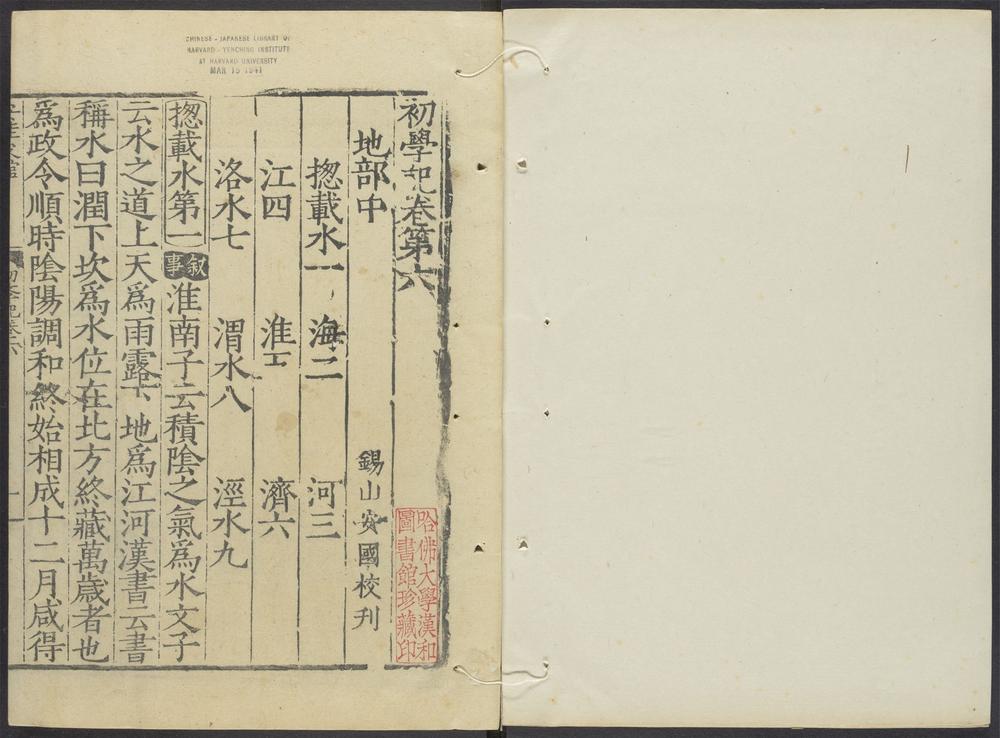 CHINESE - JAPANESE LIBRARY OF
HARVARD - YENCHING INSTITUTE
AT HARVARD UNIVERSITY
MAR 15 1941
初學記卷第六
地部中
錫山安國校刊
揔載水一 海二 河三
江四 淮五 濟六
洛水七 渭水八 涇水九
揔載水第一 叙事 淮南子云積陰之氣爲水文子
云水之道上天爲雨露下地爲江河漢書云書
稱水曰潤下坎爲水位在北方終藏萬歲者也
爲政令順時陰陽調和終始相成十二月咸得
初學記卷六
一
哈佛大學漢和
圖書館珍藏印